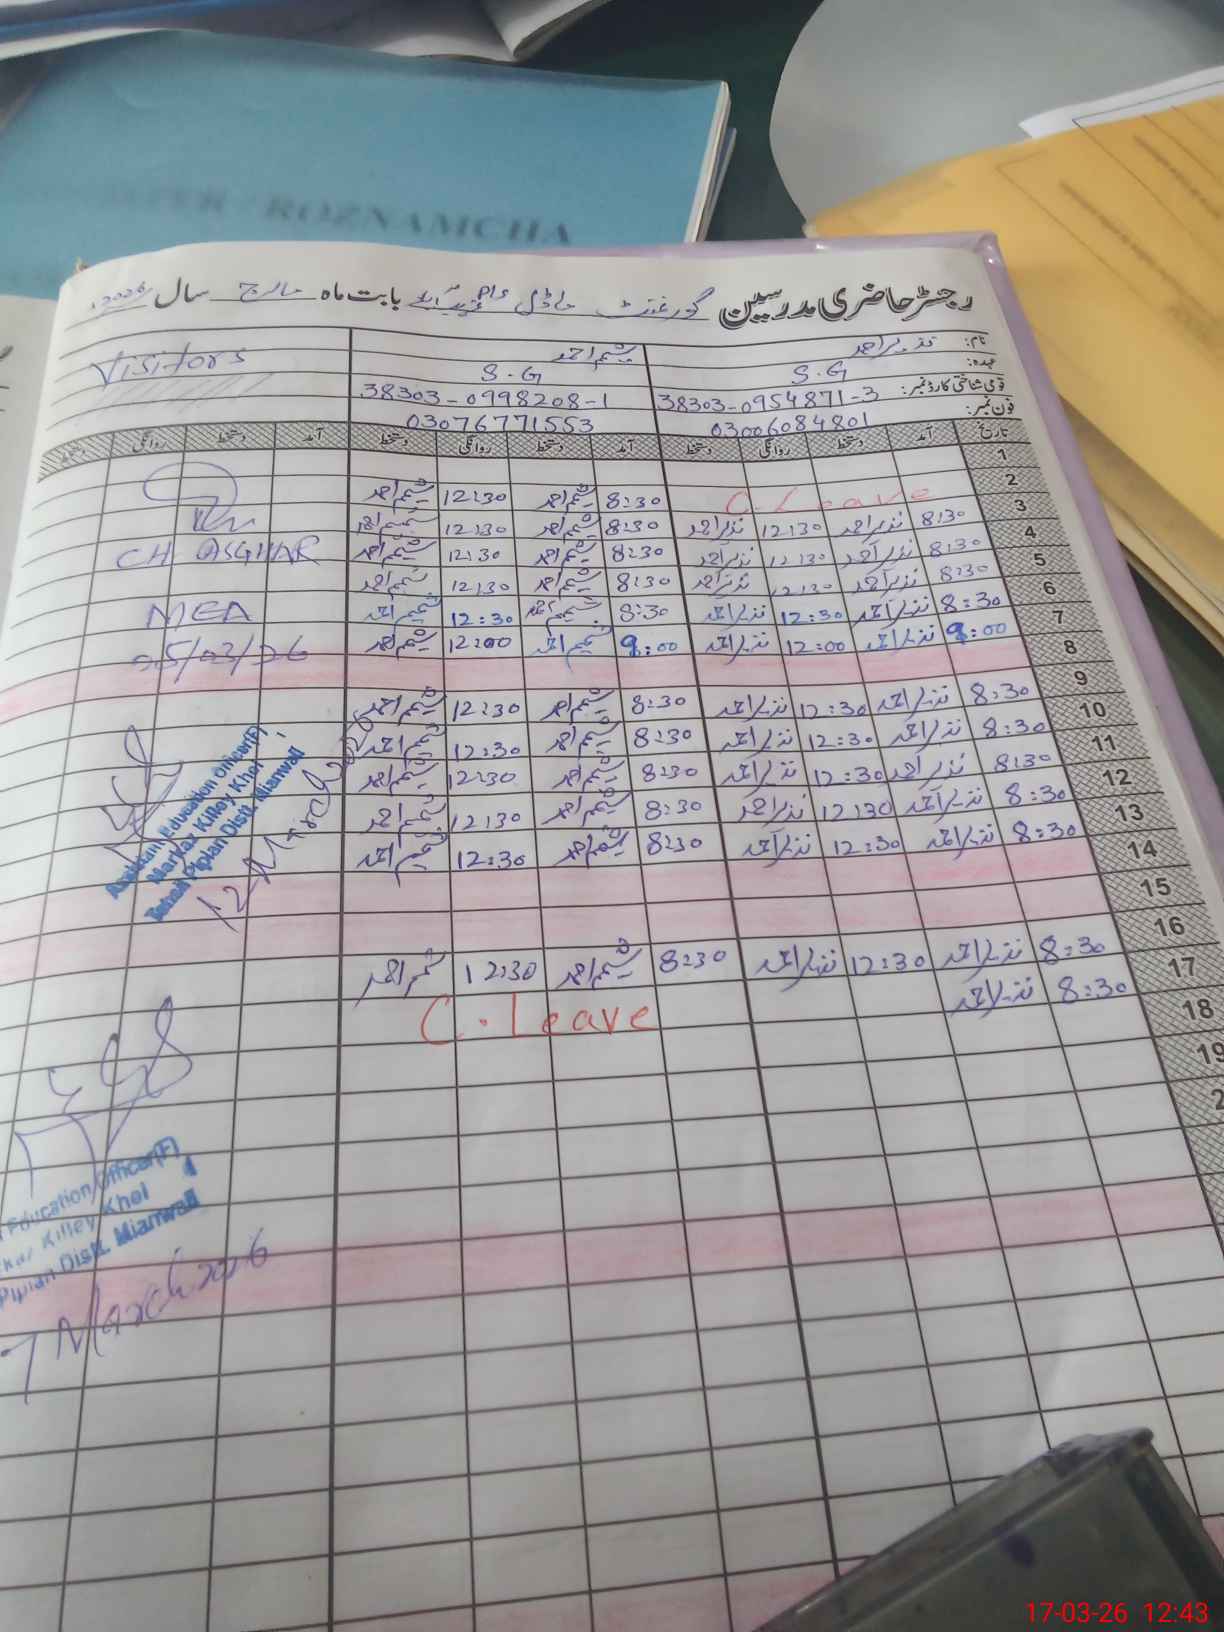 ROZNAMCHA
رجسٹر حاضری مدرسین گورنمنٹ ماڈل بابت ماہ مارچ سال 2026
نام: نذیر احمد شمیم احمد Visitors
عہدہ: S.G S.G
قومی شناختی کارڈ نمبر: 38303-0954871-3 38303-0998208-1
فون نمبر: 03006084801 03076771553
تاریخ آمد دستخط روانگی دستخط آمد دستخط روانگی دستخط آمد دستخط روانگی دستخط
1
2 C. Leave 8:30 شمیم احمد 12:30 شمیم احمد
3 8:30 نذیر احمد 12:30 نذیر احمد 8:30 شمیم احمد 12:30 شمیم احمد
4 8:30 نذیر احمد 12:30 نذیر احمد 8:30 شمیم احمد 12:30 شمیم احمد CH ASGHAR
5 8:30 نذیر احمد 12:30 نذیر احمد 8:30 شمیم احمد 12:30 شمیم احمد
6 8:30 نذیر احمد 12:30 نذیر احمد 8:30 شمیم احمد 12:30 شمیم احمد MEA
7 9:00 نذیر احمد 12:00 نذیر احمد 9:00 شمیم احمد 12:00 شمیم احمد 05/03/26
8
9 8:30 نذیر احمد 12:30 نذیر احمد 8:30 شمیم احمد 12:30 شمیم احمد
10 8:30 نذیر احمد 12:30 نذیر احمد 8:30 شمیم احمد 12:30 شمیم احمد
11 8:30 نذیر احمد 12:30 نذیر احمد 8:30 شمیم احمد 12:30 شمیم احمد
12 8:30 نذیر احمد 12:30 نذیر احمد 8:30 شمیم احمد 12:30 شمیم احمد
13 8:30 نذیر احمد 12:30 نذیر احمد 8:30 شمیم احمد 12:30 شمیم احمد
14
15
16 8:30 نذیر احمد 12:30 نذیر احمد 8:30 شمیم احمد 12:30 شمیم احمد
17 8:30 نذیر احمد C. Leave
18
19
Assistant Education Officer(F)
Markaz Killey Khel
Tehsil Piplan Distt. Mianwali
12 March 2026
Education Officer(F)
Killey Khel
Piplan Distt. Mianwali
March 2026
17-03-26 12:43